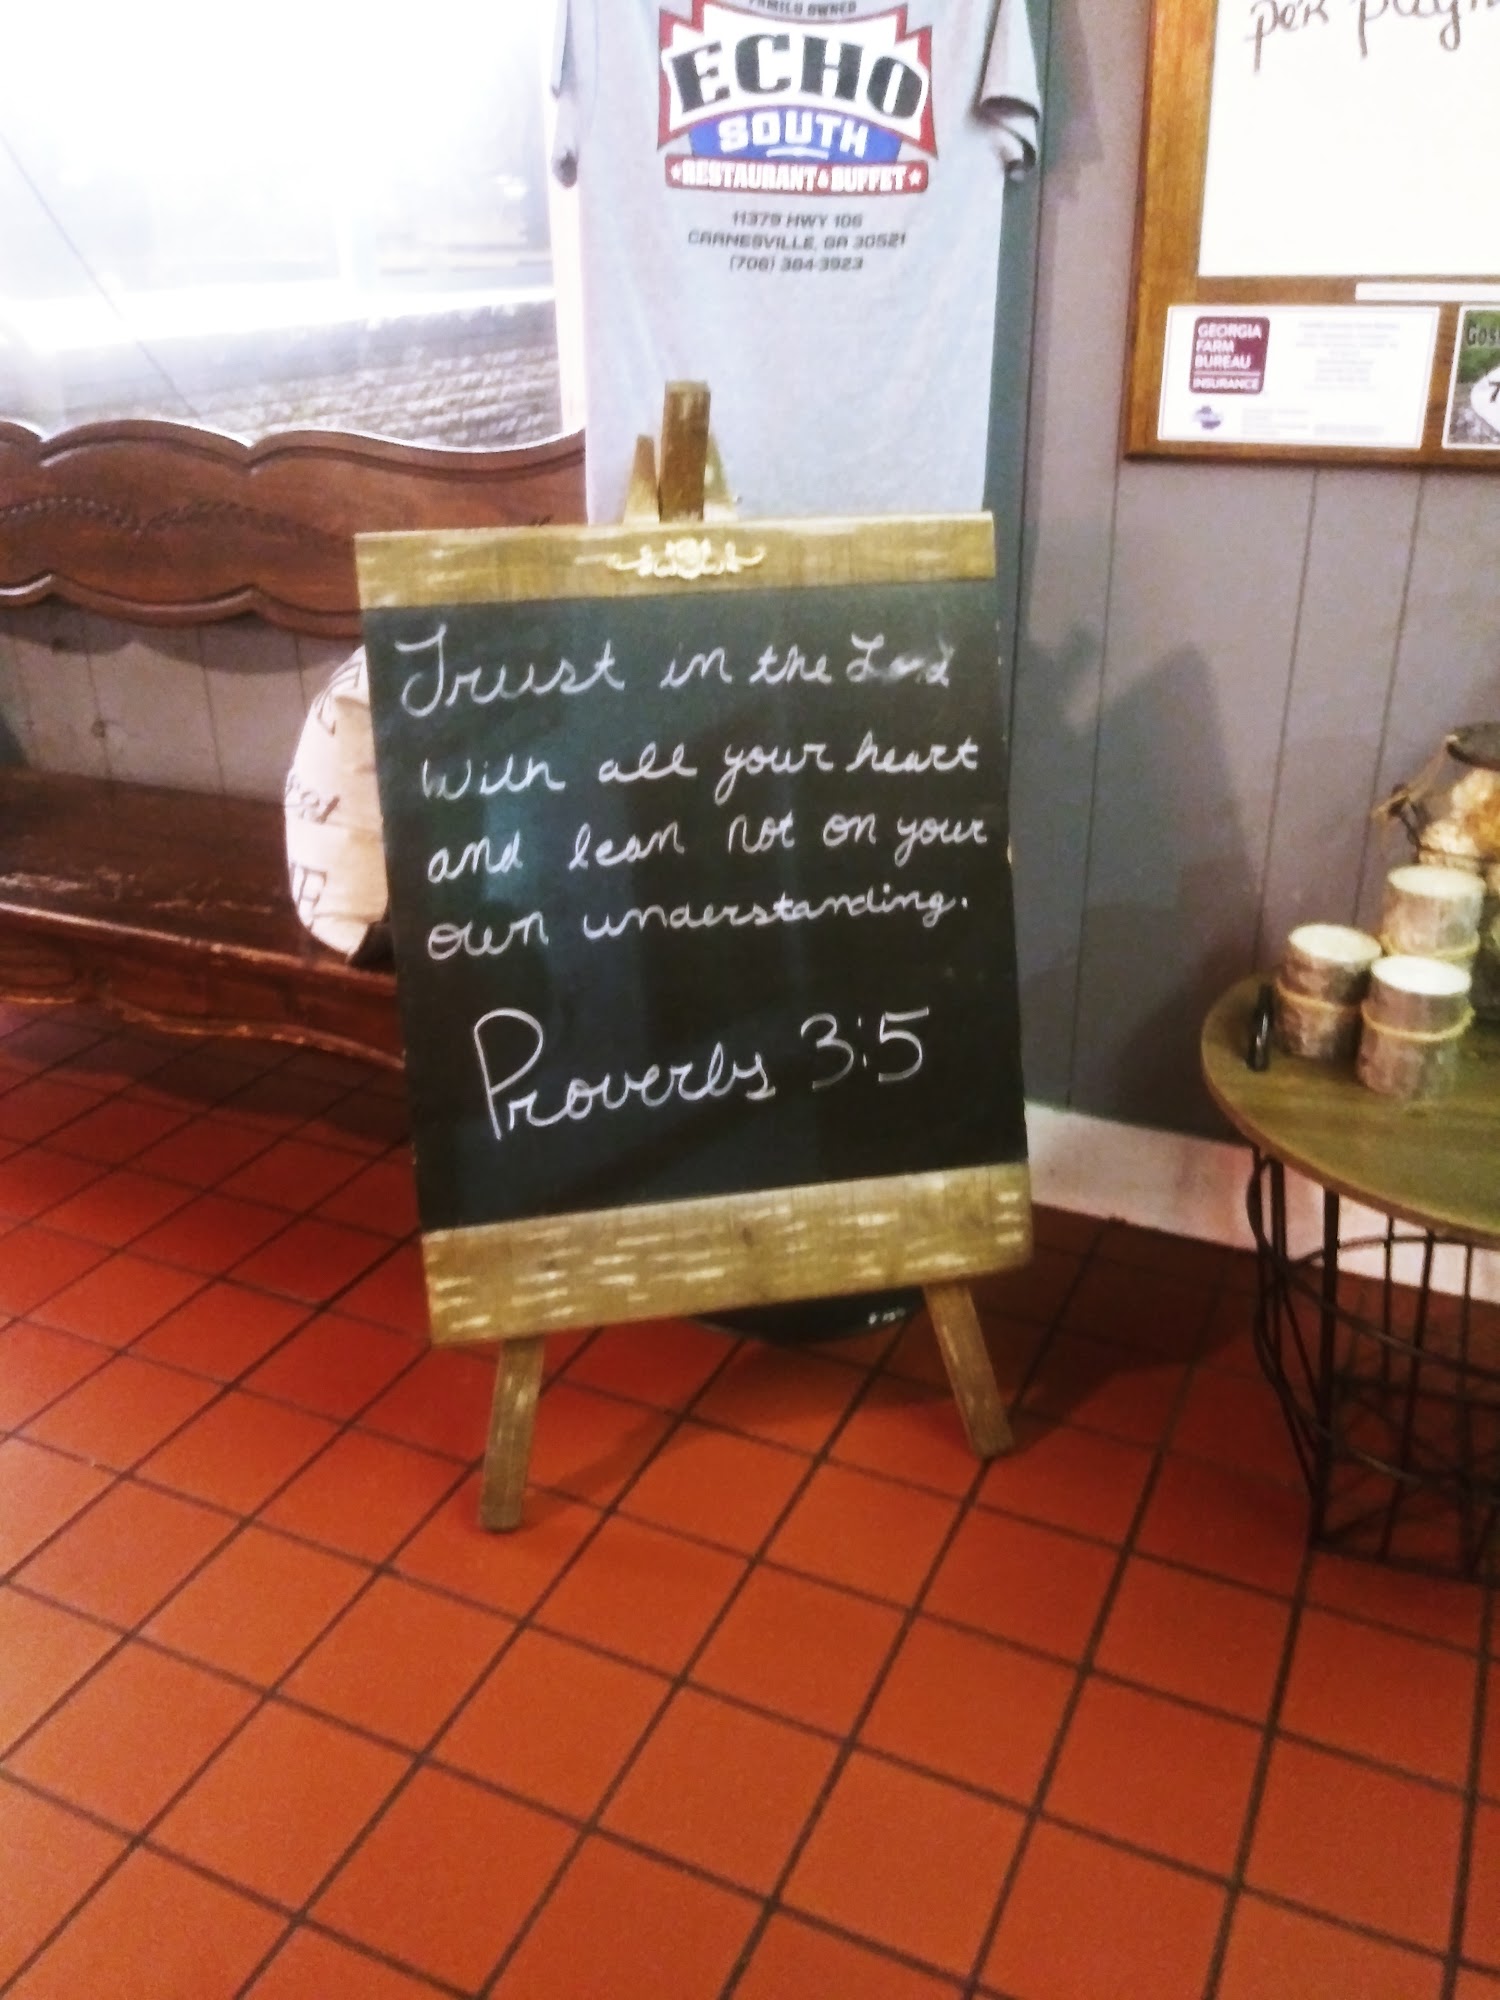 FAMILY OWNED
ECHO
SOUTH
RESTAURANT & BUFFET
11379 HWY 106
CARNESVILLE, GA 30521
(706) 384-3923
per
GEORGIA
FARM
BUREAU
INSURANCE
Trust in the Lord
With all your heart
and lean not on your
own understanding.
Proverbs 3:5